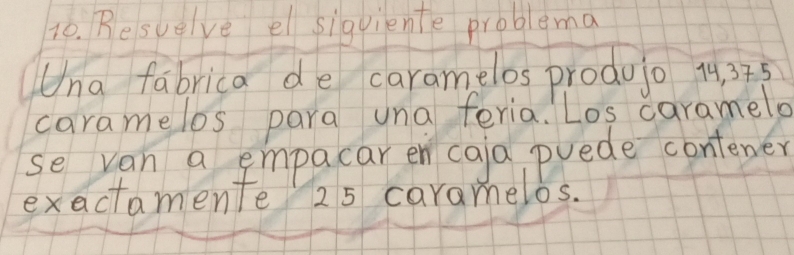 10. Resuelve el siguiente problema
Una fábrica de caramelos produjo 14,375
caramelos para una feria. Los caramelo
se van a empacar en caja puede contener
exactamente 25 caramelos.